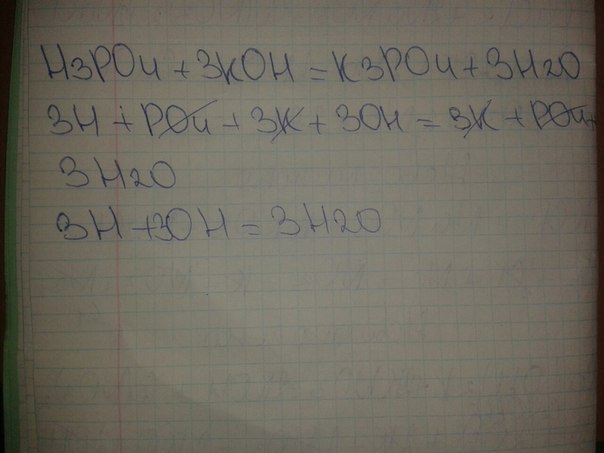 H3PO4 + 3KOH = K3PO4 + 3H2O
3H + PO4 + 3K + 3OH = 3K + PO4 +
3H2O
3H + 3OH = 3H2O